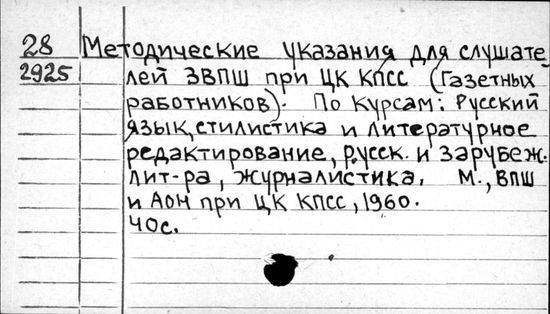 28 Методические указания для слушате-
2925 лей ЗВПШ при ЦК КПСС (Газетных
работников). По курсам: Русский
язык, стилистика и литературное
редактирование, русск. и зарубеж.
лит-ра, журналистика. М., ВПШ
и АОН при ЦК КПСС, 1960.
40с.